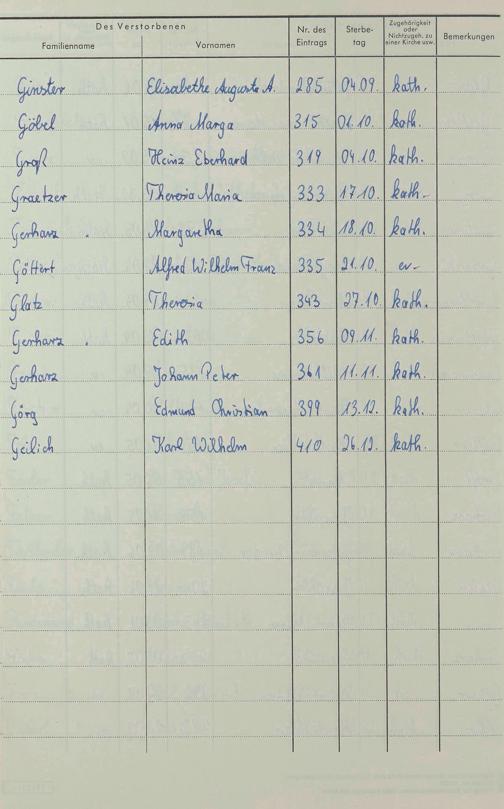 Des Verstorbenen
Familienname Vornamen Nr. des Eintrags Sterbe-tag Zugehörigkeit oder Nichtzugeh. zu einer Kirche usw. Bemerkungen
Ginster Elisabethe Auguste A. 285 04.09. kath.
Göbel Anna Marga 315 01.10. kath.
Groß Heinz Eberhard 319 04.10. kath.
Graetzer Theresia Maria 333 17.10. kath.
Gerharz Margaretha 334 18.10. kath.
Göttert Alfred Wilhelm Franz 335 21.10. ev.
Glatz Theresia 343 27.10. kath.
Gerharz Edith 356 09.11. kath.
Gerharz Johann Peter 361 11.11. kath.
Görg Edmund Christian 399 13.12. kath.
Geilich Karl Wilhelm 410 26.12. kath.